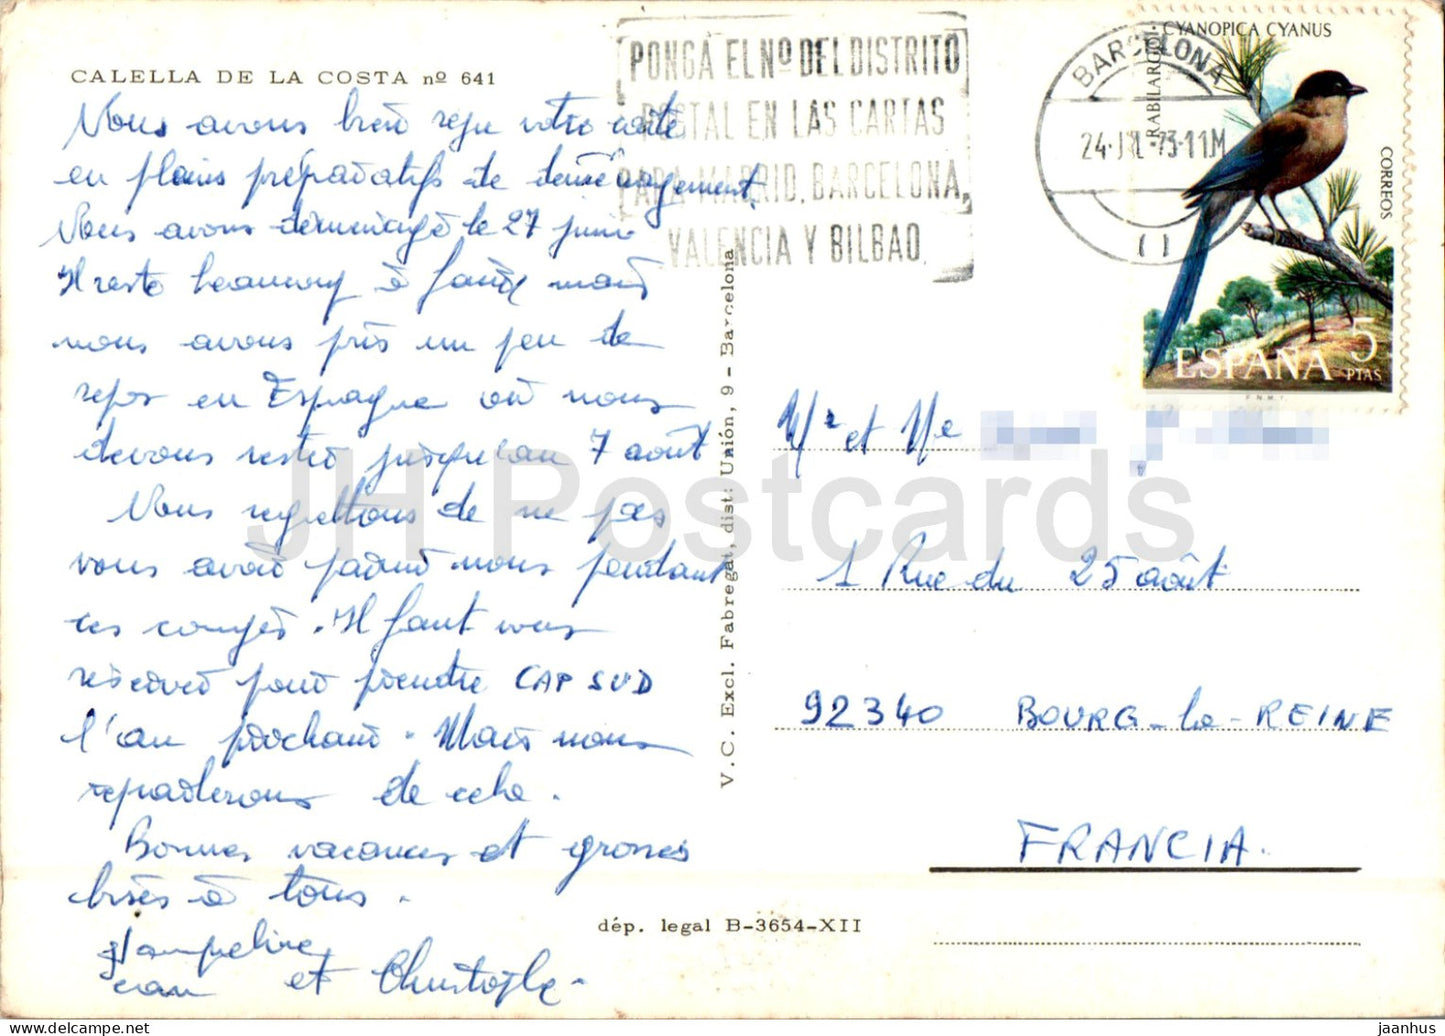 CALELLA DE LA COSTA nº 641
Nous avons bien reçu votre carte
en pleins préparatifs de déménagement.
Nous avons déménagé le 27 juin
Il reste beaucoup à faire mais
nous avons pris un peu de
repos en Espagne où nous
devons rester jusqu'au 7 août
Nous regrettons de ne pas
vous avoir parmi nous pendant
ces congés. Il faut vous
réserver pour prendre CAP SUD
l'an prochain. Mais nous
reparlerons de cela.
Bonnes vacances et grosses
bises à tous.
Jean et Christophe.
V. C. Excl. Fabregat, dist: Unión, 9 - Barcelona
dép. legal B-3654-XII
PONGA EL Nº DEL DISTRITO
POSTAL EN LAS CARTAS
PARA MADRID, BARCELONA,
VALENCIA Y BILBAO.
BARCELONA
24·JUL·73·11M
( )
CYANOPICA CYANUS
RABILARGO
CORREOS
ESPAÑA 5 PTAS
F.N.M.T.
Mr et Me
1 Rue du 25 août
92340 BOURG-la-REINE
FRANCIA.
JH Postcards
jaanhus